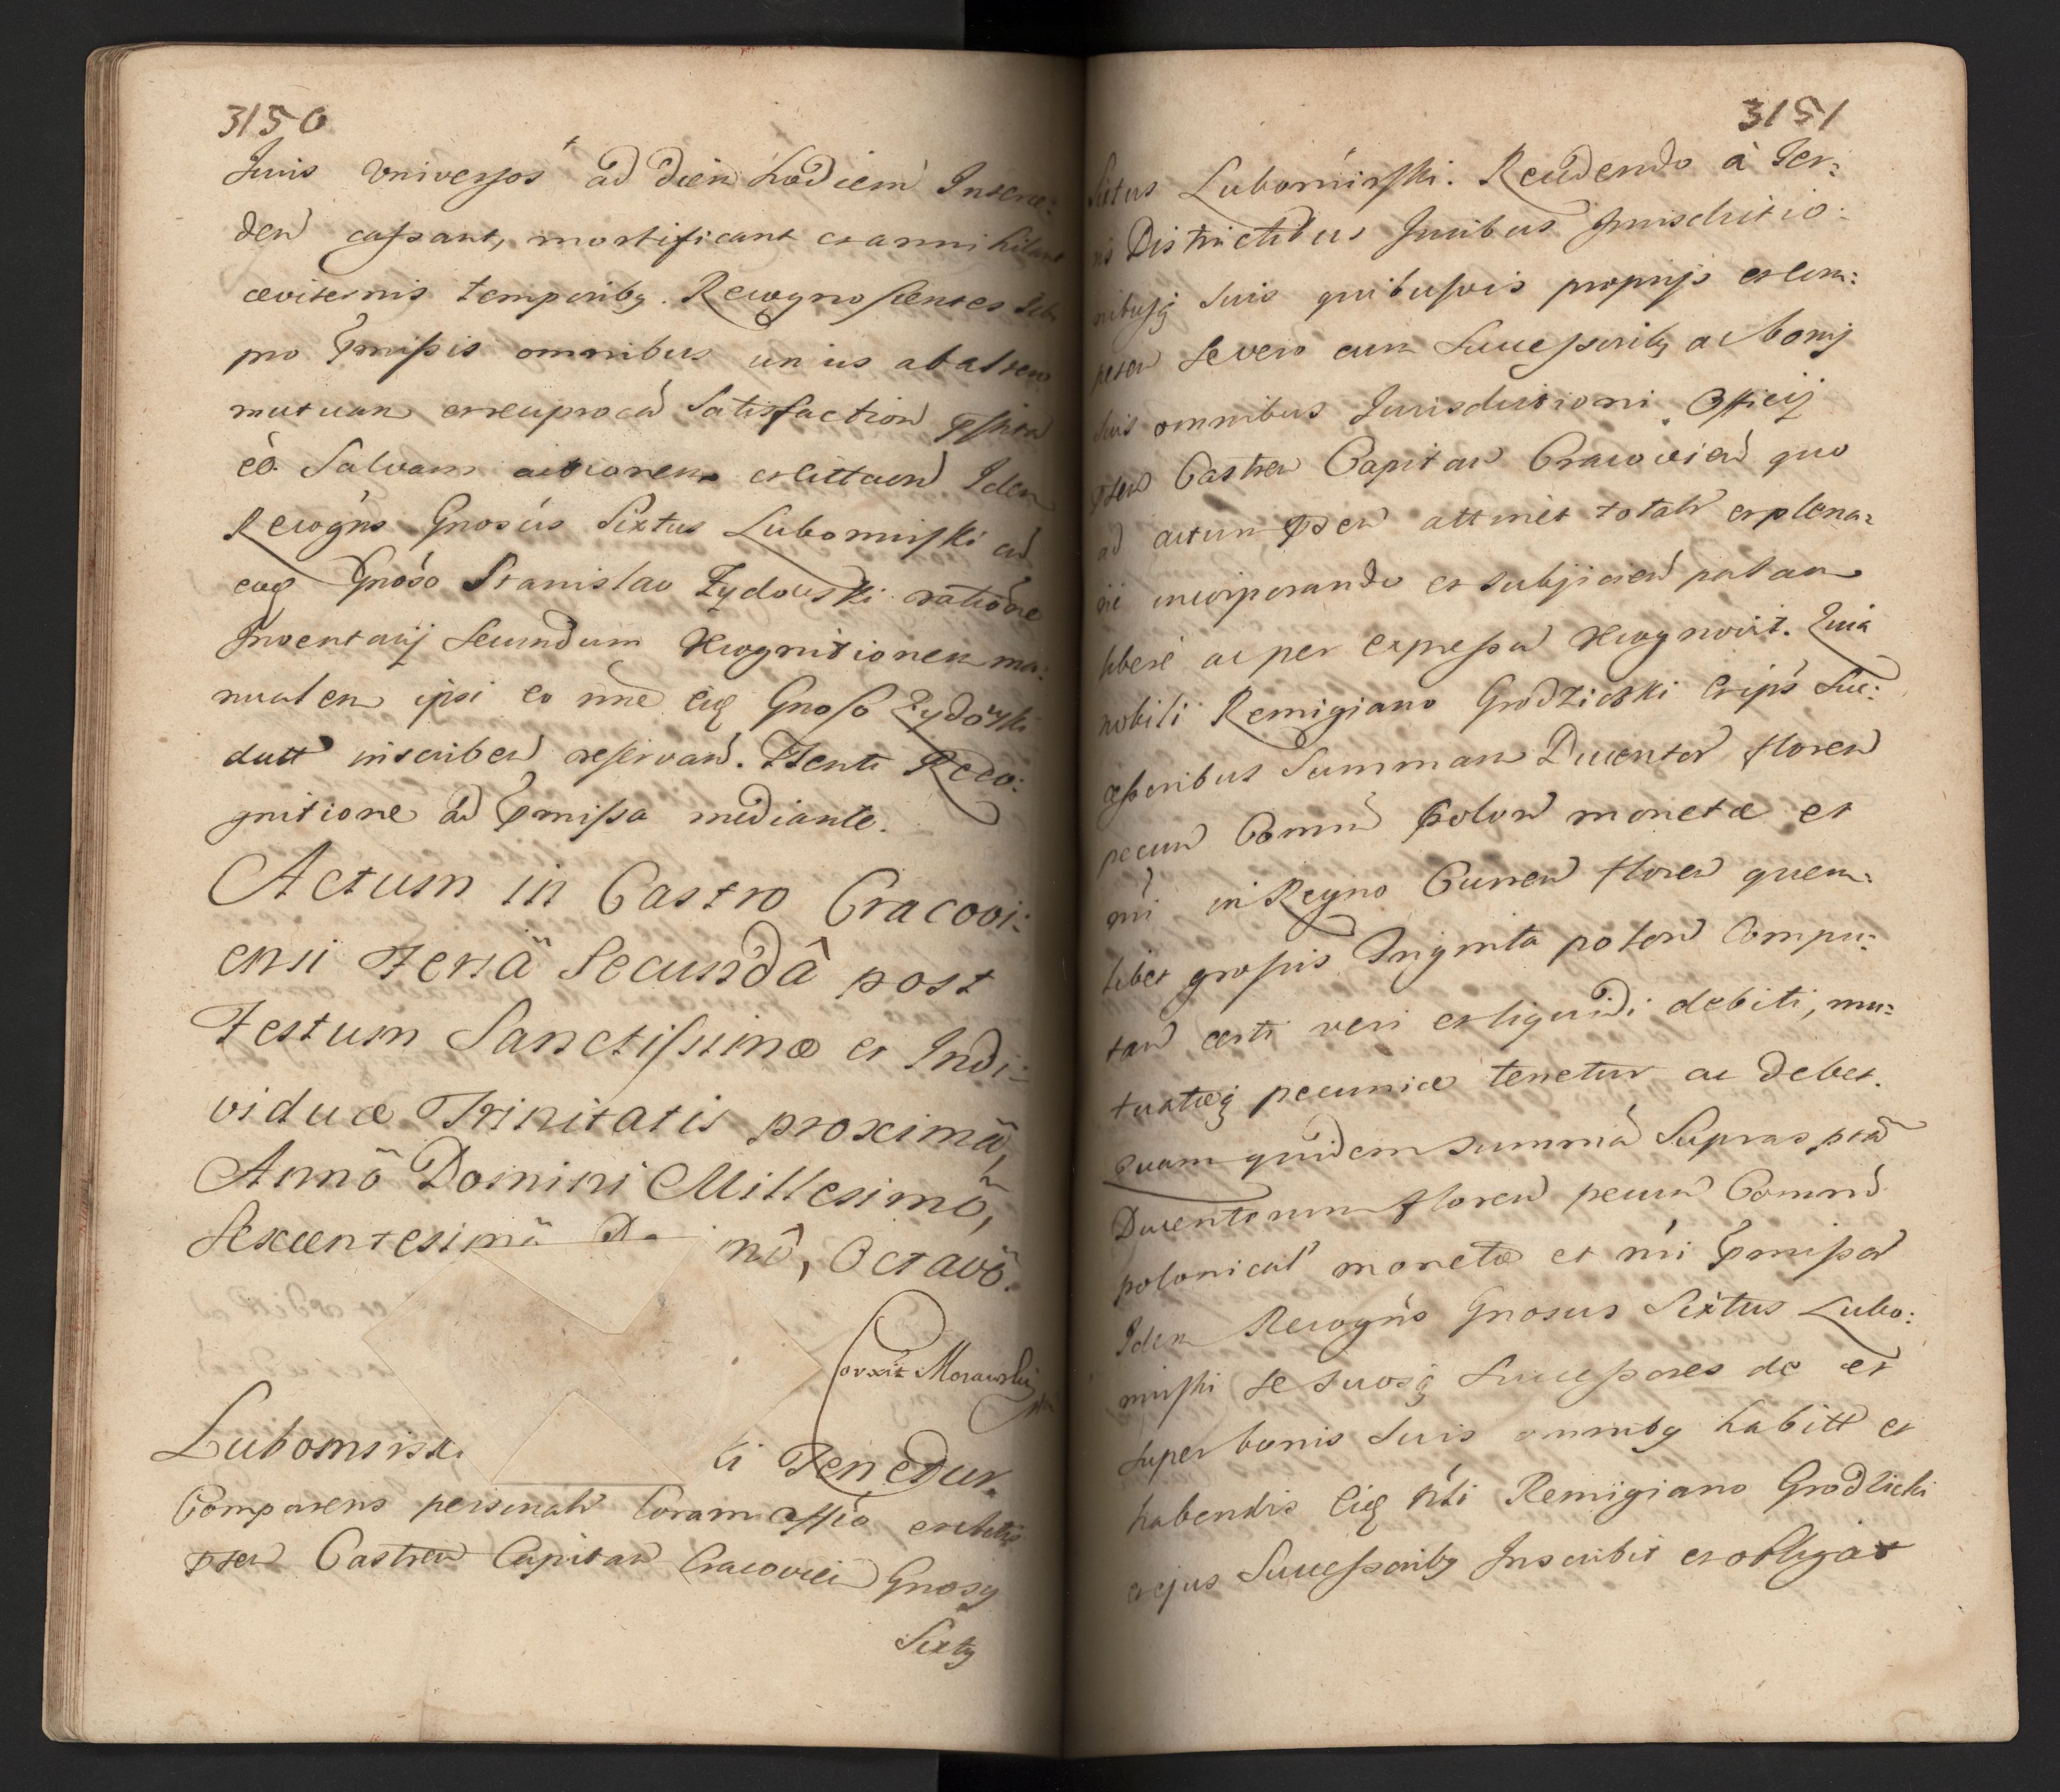 3150
Juris Universos ad diem hodiem Interce:
den cassant, mortificant et annihilant
aeviternis temporibq. Recognoscentes Sibi
pro pmissis omnibus unius ab altero
mutuam et reciprocam Satisfaction
eo Salvam actionem et cittaon Idem
Recogns Gnosus Sixtus Lubomirski cum
eoq Gnoso Stanislao Zydowski ratione
Inventarij Secundum Recognitionem ma:
nualem ipsi eo nne eiq Gnoso Zydowski
datt inscriben reservan. Psenti Reco:
gnitione ad pmissa mediante.
Actum in Castro Cracovi:
ensi Feria Secunda post
Festum Sanctissimae et Indi:
viduae Trinitatis proxima,
Anno Domini Millesimo,
Sexcentesimo no, Octavo.
Corxit Morawski
Lubomirsk i Tenetur.
Comparens personalr Coram Offio et actis
psen Castren Capitan Cracovien Gnosq
Sixtq
3151
Sixtus Lubomirski. Recedendo à Ter:
ris Districtibus Juribus Jurisdictio:
nibusq Suis quibusvis proprijs et com:
peten Se vero cum Successoribq ac bonis
Suis omnibus Jurisdictioni Officij
psen Castren Capitan Cracovien quo
ad actum psen attinet totalr et plena:
rie incorporando et subjicien palam
libere ac per expressum Recognovit. Quia
nobili Remigiano Grodzicki Eripś Suc:
cessoribus Summam Ducentor floren
pecun Comun Polon monetae et
nri in Regno Curren floren quem:
libet grossis Triginta polon Compu:
tan certi veri et liquidi debiti, mu:
tuataeq pecuniae tenetur ac debet.
Quam quidem summam Suprascptam
Ducentorum floren pecun Comun
polonical monetae et nri pmissam
Idem Recogns Gnosus Sixtus Lubo:
mirski Se Suosq Successores de et
super bonis Suis omnibq habitt et
habendis Eiq Nli Remigiano Grodzicki
et ejus Successoribq Inscribit et obligat